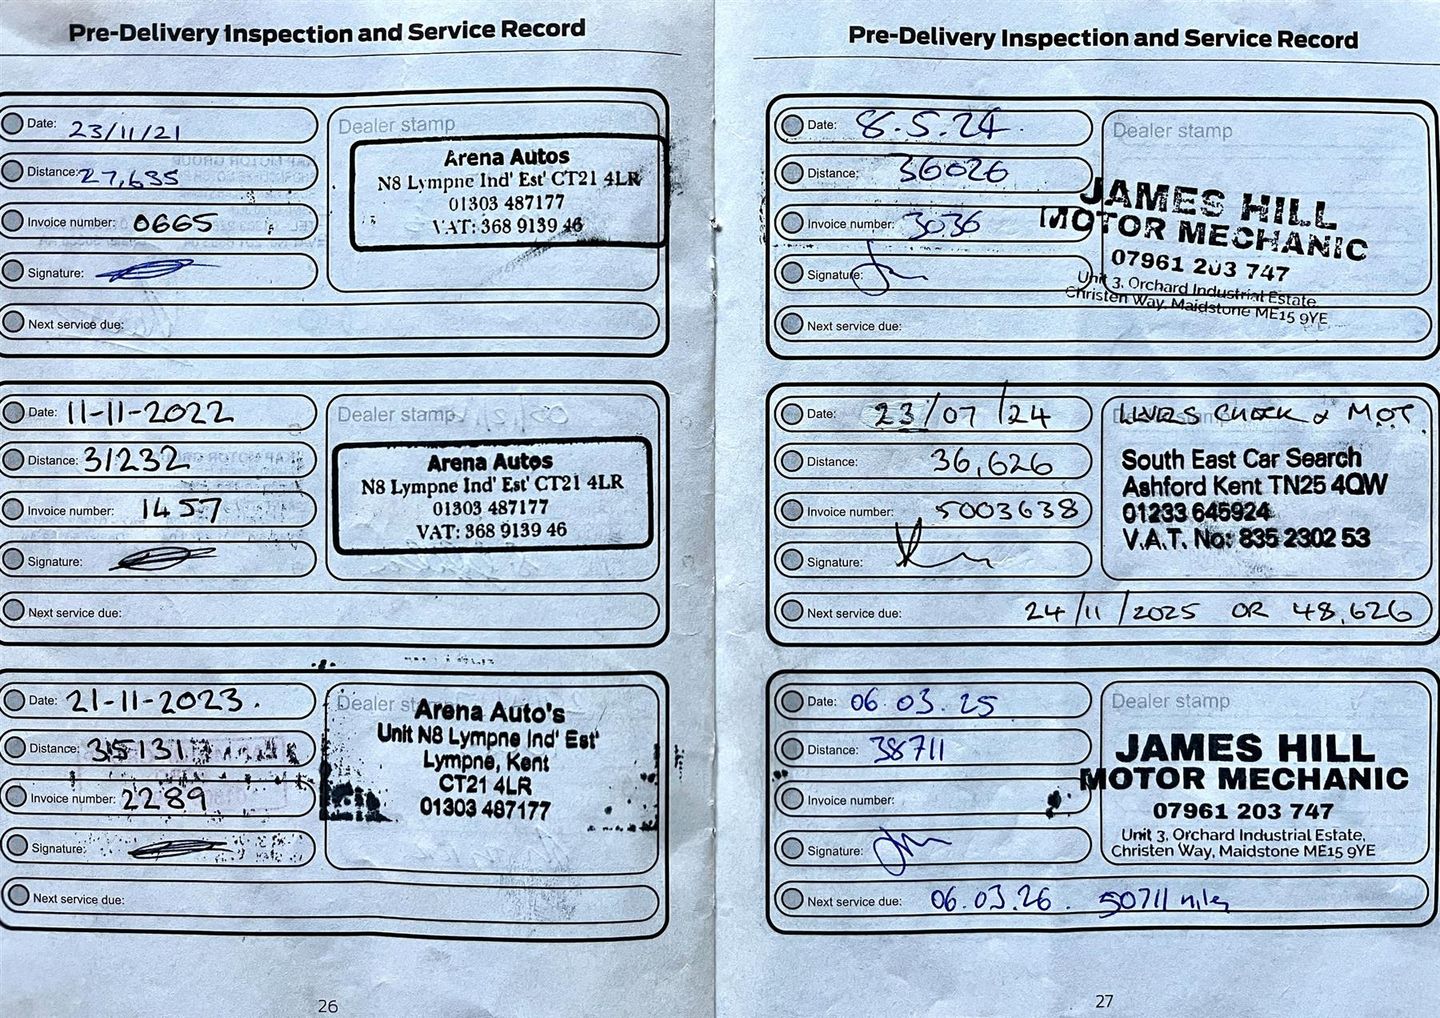 Pre-Delivery Inspection and Service Record
Date: 23/11/21
Distance: 27,635
Invoice number: 0665
Signature:
Next service due:
Dealer stamp
Arena Autos
N8 Lympne Ind' Est' CT21 4LR
01303 487177
VAT: 368 9139 46
Date: 11-11-2022
Distance: 31232
Invoice number: 1457
Signature:
Next service due:
Dealer stamp
Arena Autos
N8 Lympne Ind' Est' CT21 4LR
01303 487177
VAT: 368 9139 46
Date: 21-11-2023.
Distance: 35131
Invoice number: 2289
Signature:
Next service due:
Dealer stamp
Arena Auto's
Unit N8 Lympne Ind' Est'
Lympne, Kent
CT21 4LR
01303 487177
26
Pre-Delivery Inspection and Service Record
Date: 8.5.24.
Distance: 36026
Invoice number: 3036
Signature:
Next service due:
Dealer stamp
JAMES HILL
MOTOR MECHANIC
07961 203 747
Unit 3, Orchard Industrial Estate,
Christen Way, Maidstone ME15 9YE
Date: 23/07/24
Distance: 36,626
Invoice number: 5003638
Signature:
Next service due: 24/11/2025 OR 48,626
Dealer stamp
CHECK & MOT
South East Car Search
Ashford Kent TN25 4QW
01233 645924
V.A.T. No: 835 2302 53
Date: 06.03.25
Distance: 38711
Invoice number:
Signature:
Next service due: 06.03.26. 50711 miles
Dealer stamp
JAMES HILL
MOTOR MECHANIC
07961 203 747
Unit 3, Orchard Industrial Estate,
Christen Way, Maidstone ME15 9YE
27